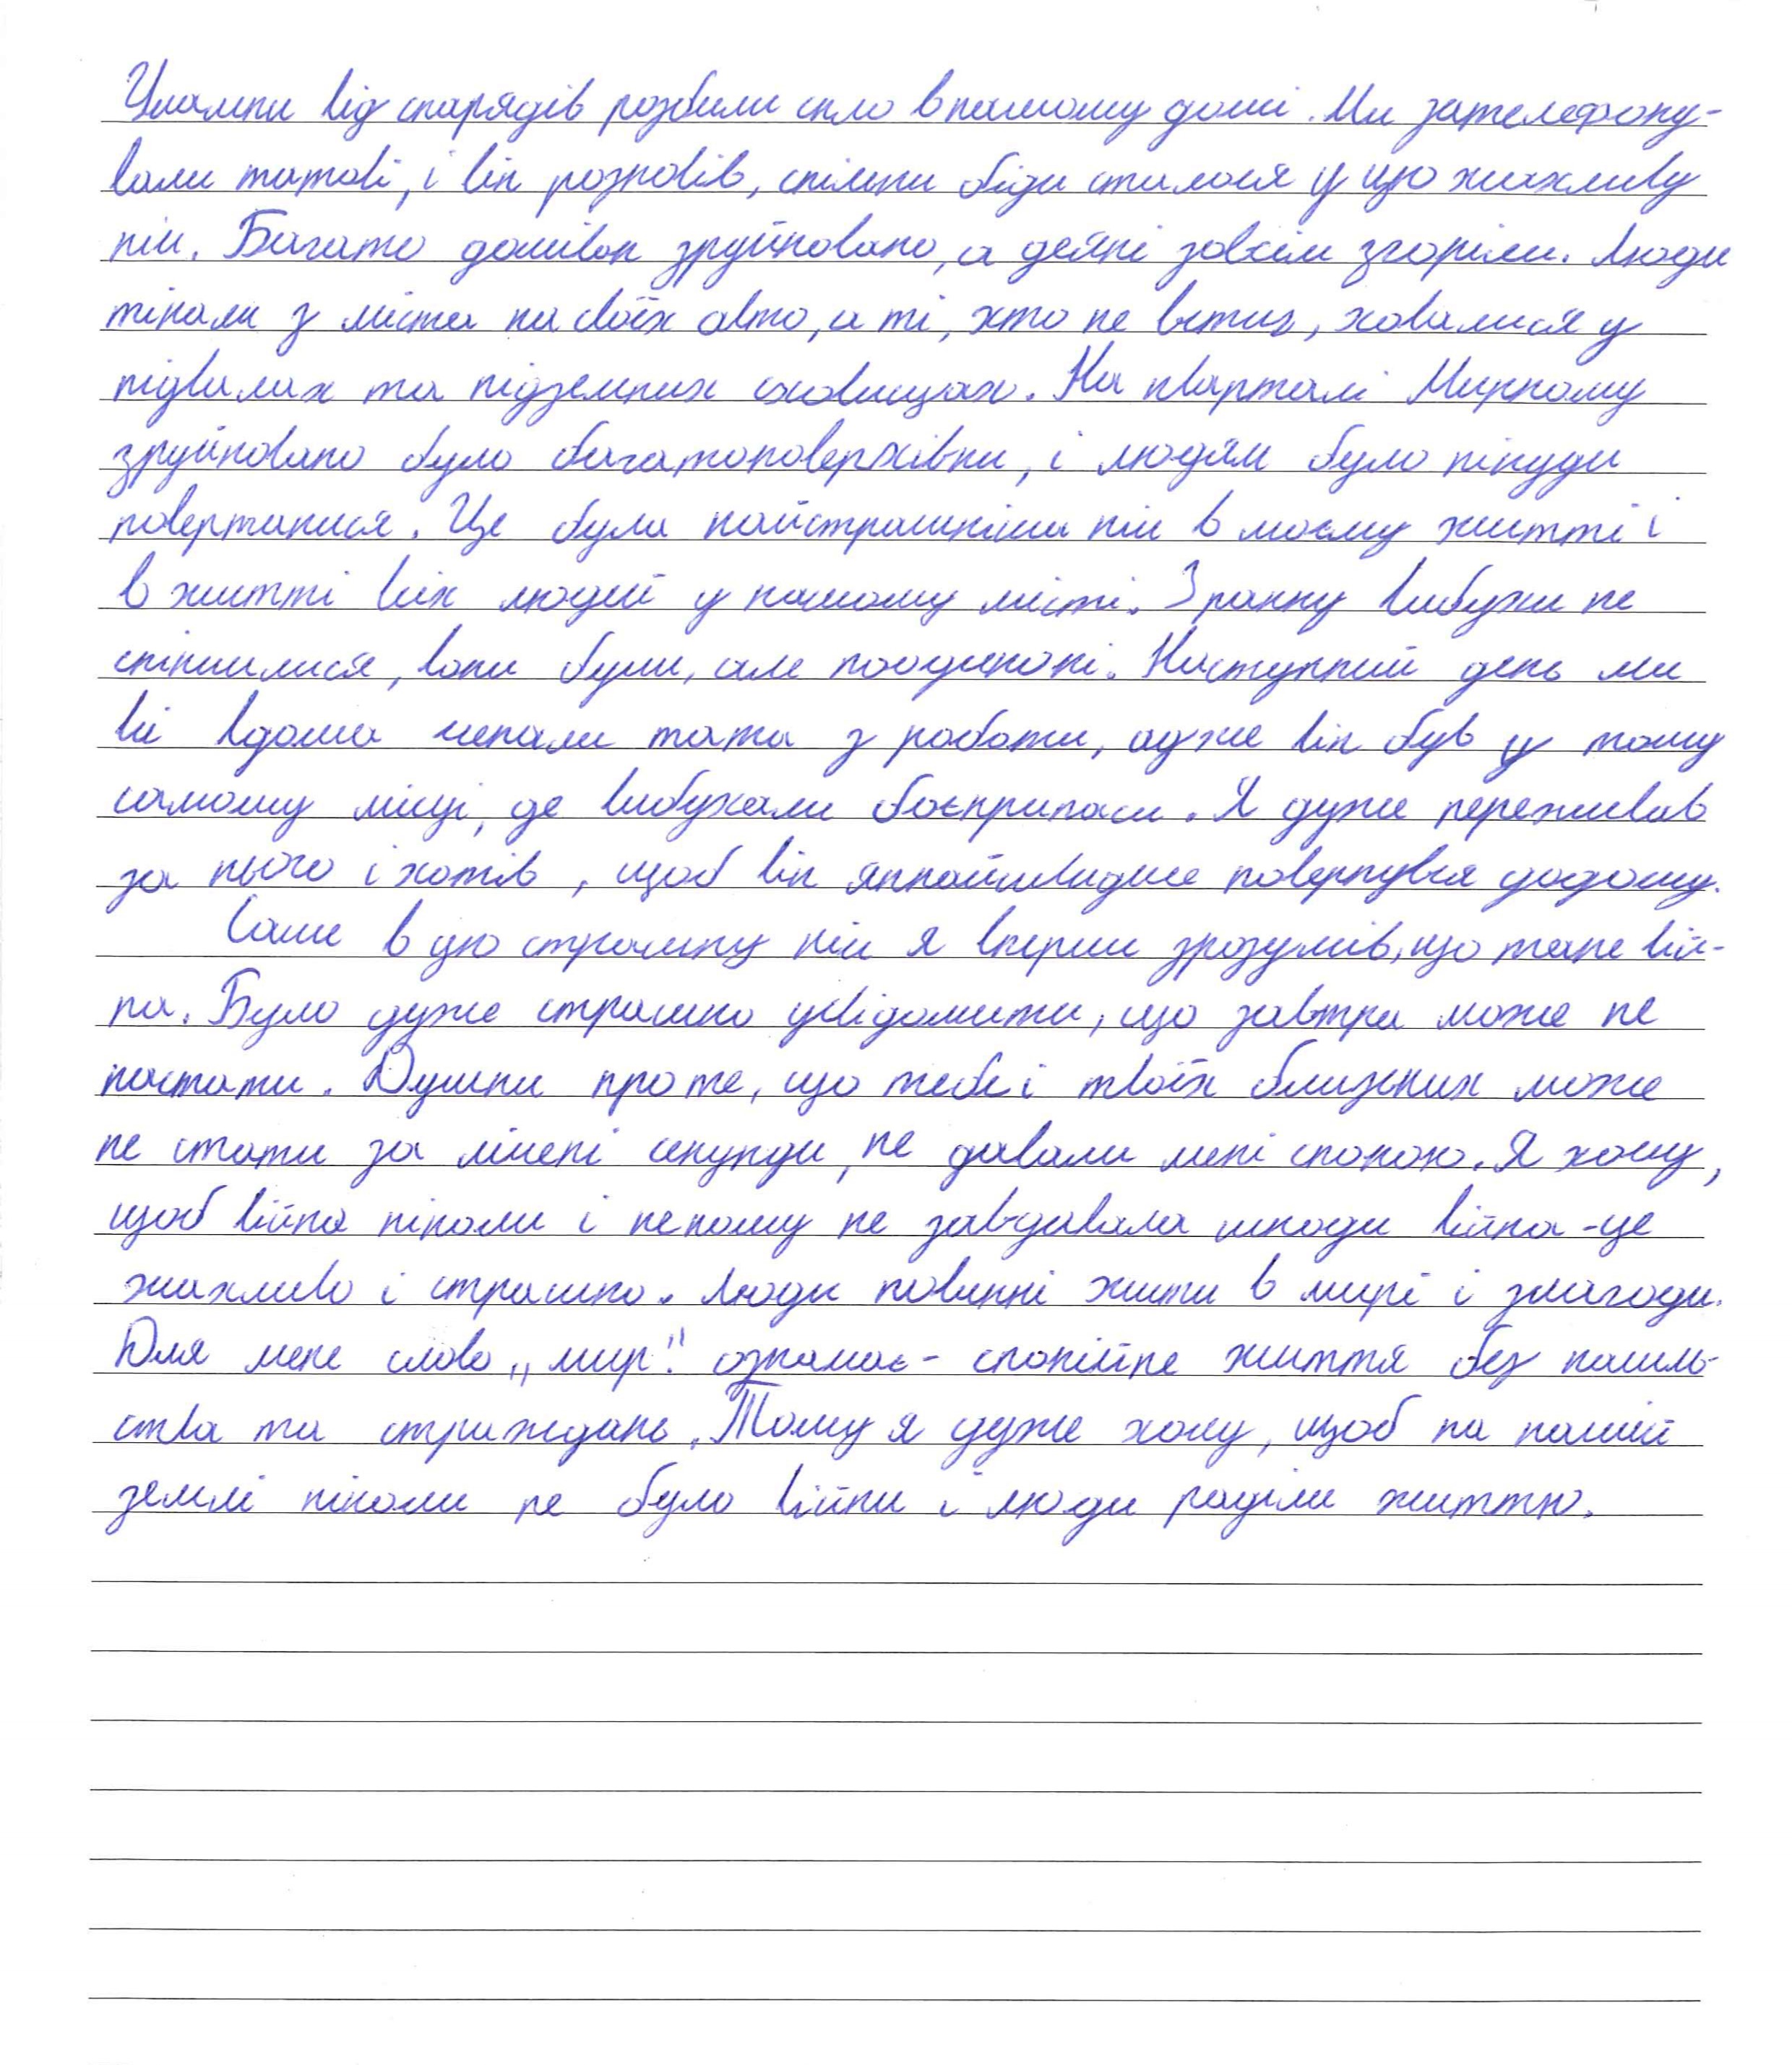 Уламки від снарядів розбили скло в нашому домі. Ми зателефону-
вали татові, і він розповів, скільки біди сталося у цю жахливу
ніч. Багато домівок зруйновано, а деякі зовсім згоріли. Люди
тікали з міста на своїх авто, а ті, хто не встиг, ховалися у
підвалах та підземних сховищах. На кварталі Мирному
зруйновано було багатоповерхівки, і людям було нікуди
повертатися. Це була найстрашніша ніч в моєму житті і
в житті всіх людей у нашому місті. З ранку вибухи не
спинилися, вони були, але поодинокі. Наступний день ми
всі вдома чекали тата з роботи, адже він був у тому
самому місці, де вибухали боєприпаси. Я дуже переживав
за нього і хотів, щоб він якнайшвидше повернувся додому.
Саме в цю страшну ніч я вперше зрозумів, що таке вій-
на. Було дуже страшно усвідомити, що завтра може не
настати. Думки про те, що тебе і твоїх близьких може
не стати за лічені секунди, не давали мені спокою. Я хочу,
щоб війна ніколи і некому не завдавала шкоди війна - це
жахливо і страшно. Люди повинні жити в мирі і злагоди.
Для мене слово „мир" означає - спокійне життя без насиль-
ства та страждань. Тому я дуже хочу, щоб на нашій
землі ніколи не було війни і люди раділи життю.